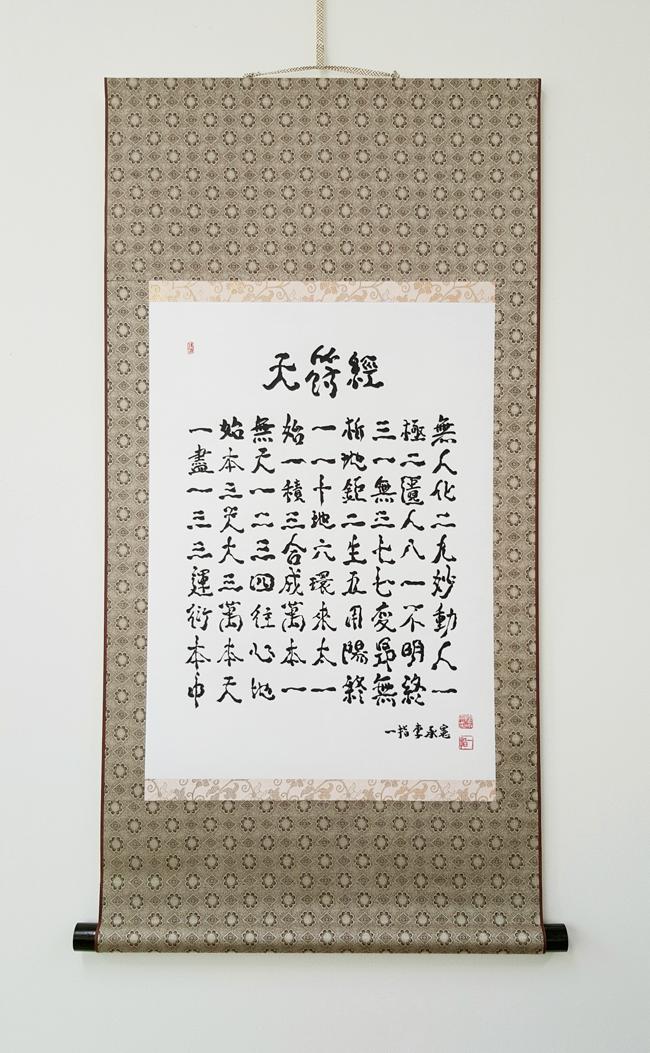 天符經
一始無始一析三極無
盡本天一一地一二人
一三一積十鉅無匱化
三天二三地二三人二
三大三合六生七八九
運三四成環五七一妙
衍萬往萬來用變不動
本本心本太陽昻明人
中天地一一終無終一
一指李承憲